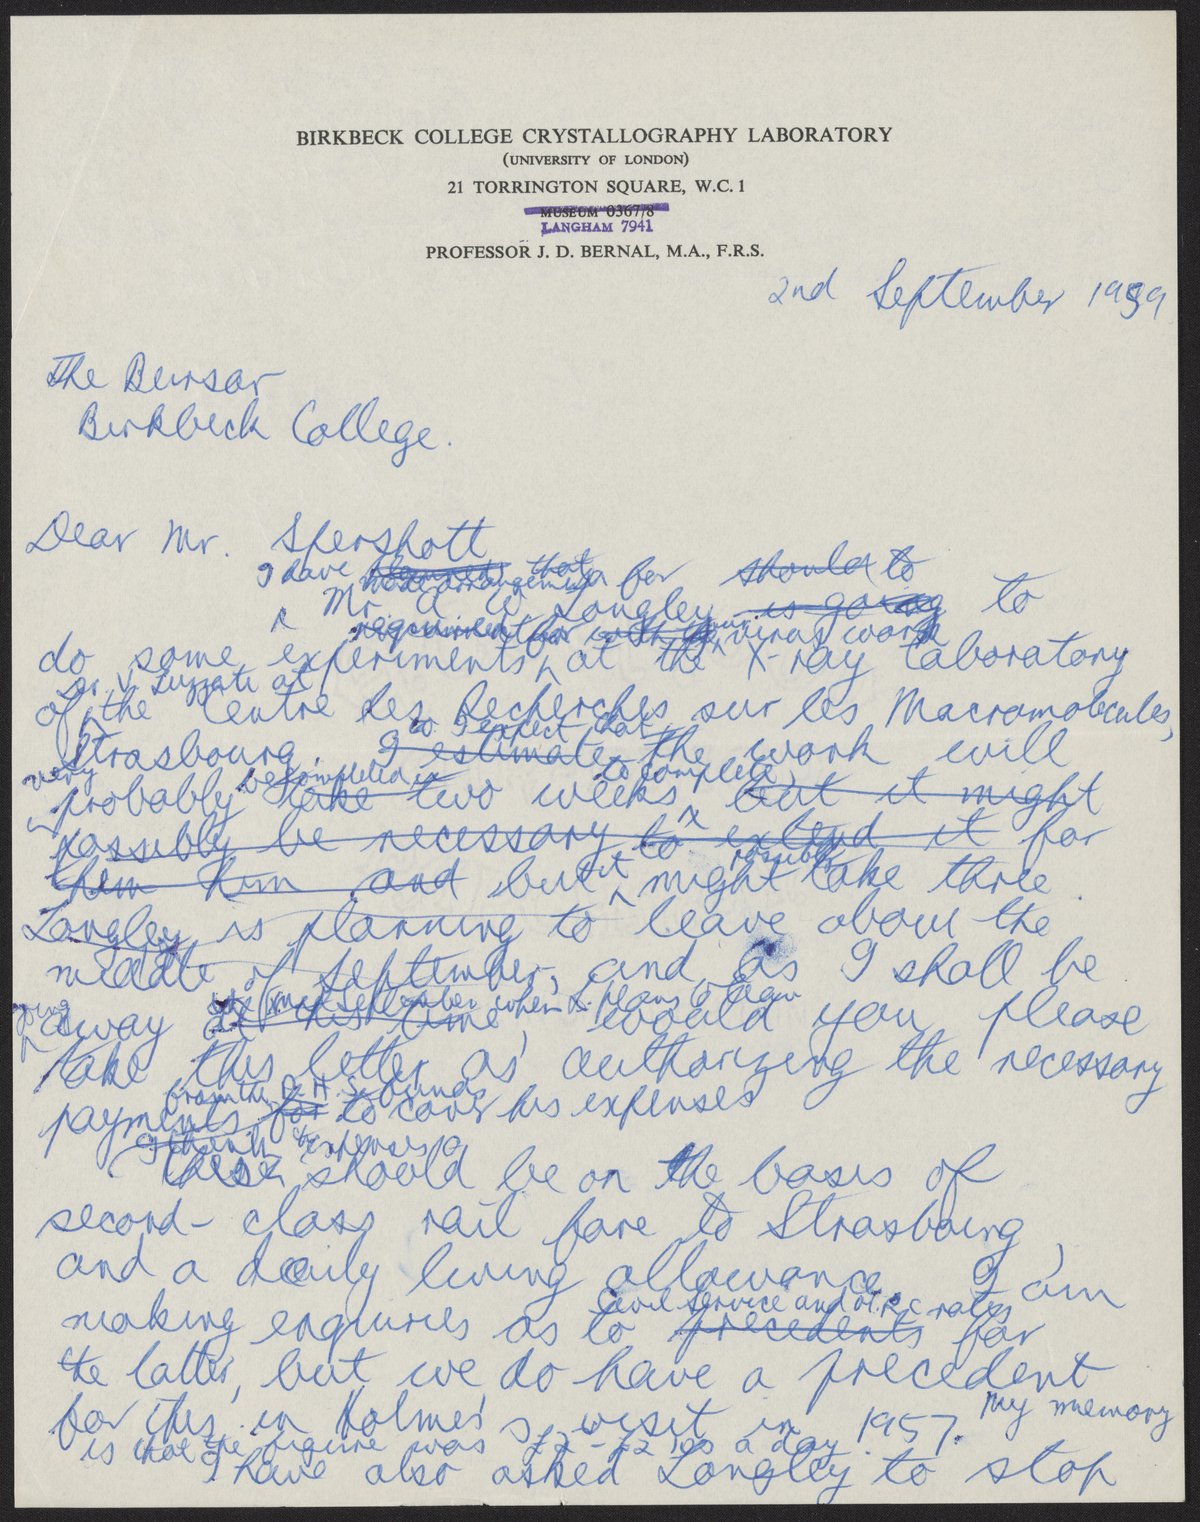 BIRKBECK COLLEGE CRYSTALLOGRAPHY LABORATORY
(UNIVERSITY OF LONDON)
21 TORRINGTON SQUARE, W.C. 1
MUSEUM 0367/8
LANGHAM 7941
PROFESSOR J. D. BERNAL, M.A., F.R.S.
2nd September 1959
The Bursar
Birkbeck College.
Dear Mr. Spershott
I have that for should to
made arrangements
Mr. Longley is going to
requirement for with our virus work
do some experiments at the X-ray Laboratory
Dr. V. Luzzati at
of the Centre des Recherches sur les Macromolecules,
to I expect that
Strasbourg. I estimate the work will
very be completed in to complete,
probably take two weeks but it might
possibly be necessary to extend it for
it possibly
them him and but might take three.
Longley is planning to leave about the
middle of September, and as I shall be
going mid September when L. plans to
away at this time, would you please
take this letter as authorizing the necessary
from the N. H. S. funds
payments for to cover his expenses
I think expenses
These should be on the basis of
second-class rail fare to Strasbourg,
and a daily living allowance. I am
Civil Service and M.R.C. rates
making enquiries as to precedents for
the latter, but we do have a precedent
for this in Holmes's visit in 1957. My memory
is that the figure was £2 - £2 10s a day
I have also asked Longley to stop